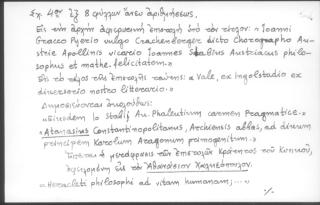 Σχ. 4ον ἐξ 8 φύλλων ἄνευ ἀριθμήσεως.
Εἰς τὴν ἀρχὴν ἀφιερωτικὴ ἐπιστολὴ ὑπὸ τὸν τίτλον: «Ioanni
Gracco Pyerio vulgo Crachenberger dicto Chorographo Au-
striae Apollinis vicario Ioannes Stabius Austriacus philo-
sophus et mathe. felicitatem.»
Εἰς τὸ τέλος τῆς ἐπιστολῆς ταύτης: «Vale, ex Ingolstadio ex
diversorio nostro litterario.»
Δημοσιεύονται ἀκολούθως:
Io Stabii Au. Phaleutium carmen Pragmatice.»
«Atanasius Constantinopolitanus, Archiensis abbas, ad divum
principem Karolum Aragonum primogenitum.»
Ἕπεται ἡ μετάφρασις τῶν ἐπιστολῶν Κράτητος τοῦ Κυνικοῦ,
ὀφειλομένη εἰς τὸν Ἀθανάσιον Χαλκεόπουλον.
«Heracleti philosophi ad vitam humanam;...»
·/.